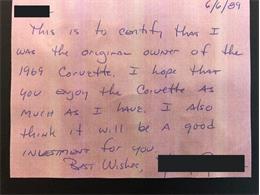 6/6/89
This is to certify that I
was the original owner of the
1969 Corvette. I hope that
you enjoy the Corvette as
much as I have. I also
think it will be a good
investment for you.
Best Wishes,